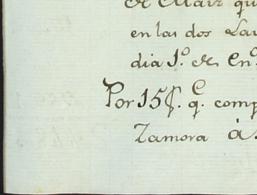 de Maiz qu
en las dos Lau
dia 1º de En
Por 15 f. q. comp
Zamora á